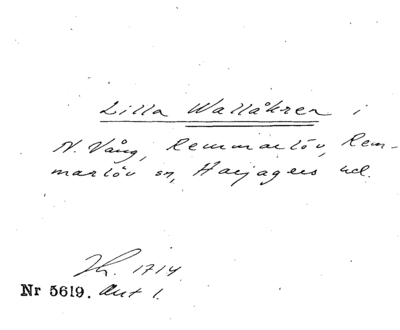 Lilla Wallåkren i
N. Vång, Remmarlöv, Rem-
marlöv sn, Harjagers hd.
Lh. 1714.
Nr 5619. Akt 1.